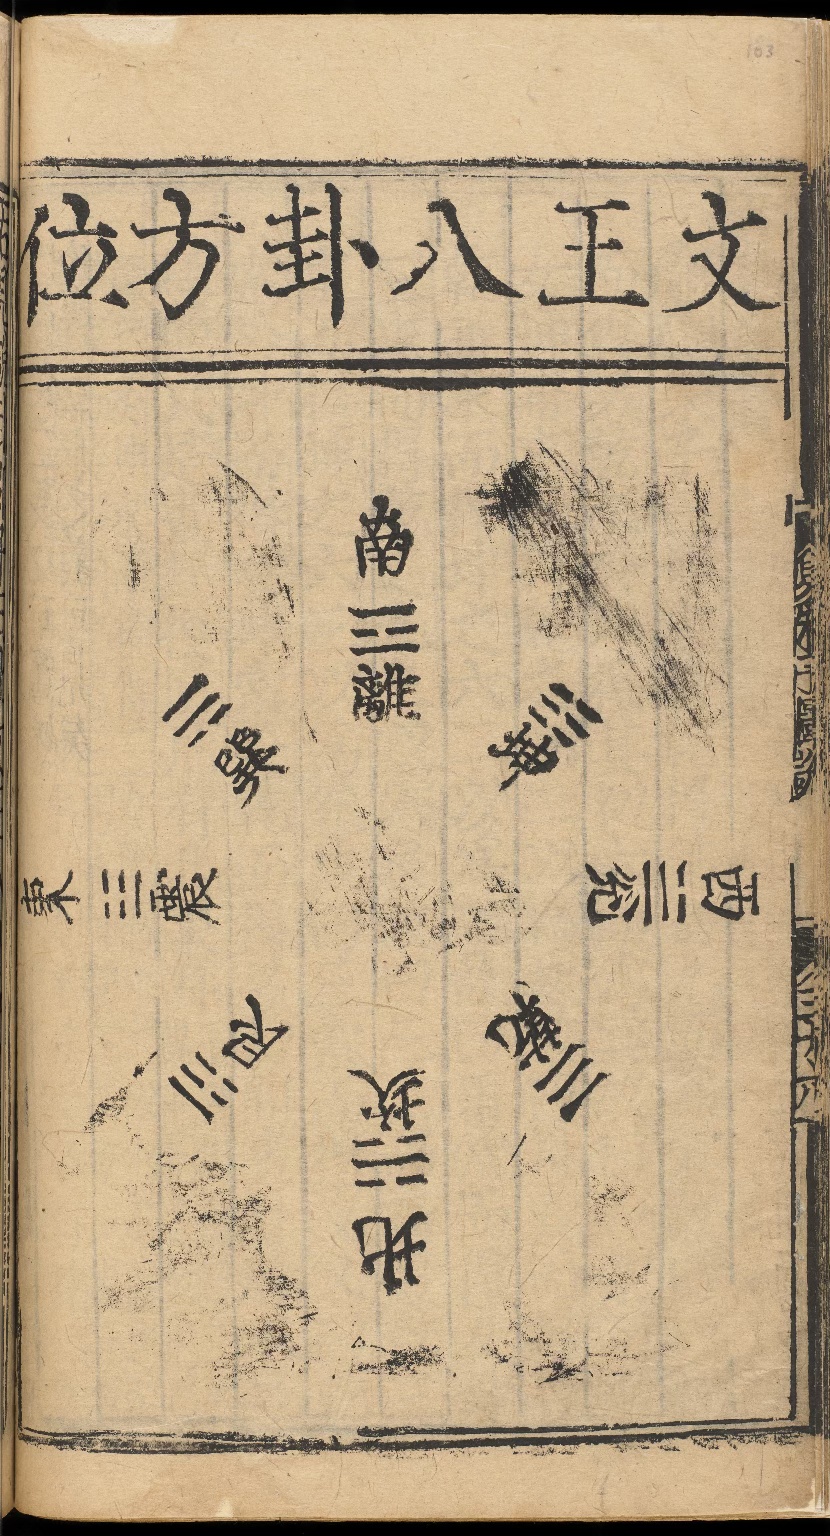 文王八卦方位
南
☲
離
☷
坤
西
☱
兌
☰
乾
北
☵
坎
☶
艮
東
☳
震
☴
巽